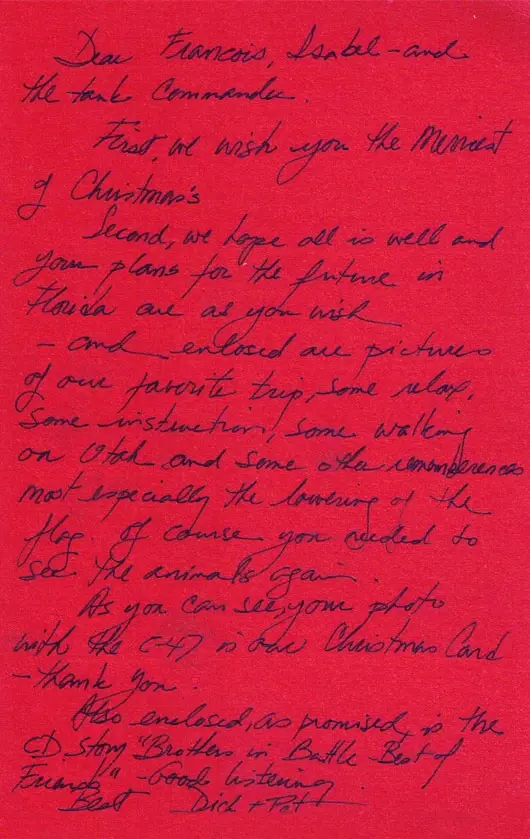 Dear Francois, Isabel - and
the tank Commander.
First, we wish you the Merriest
of Christmas's
Second, we hope all is well and
your plans for the future in
Florida are as you wish
- and enclosed are pictures
of our favorite trip, some relax,
some instruction, some walking
on Utah and some other rememberences
most especially the lowering of the
flag. Of course you needed to
see the animals again.
As you can see, your photo
with the C-47 is our Christmas Card
- thank you.
Also enclosed, as promised, is the
CD Story "Brothers in Battle Best of
Friends" - Good listening
Best Dick + Pat